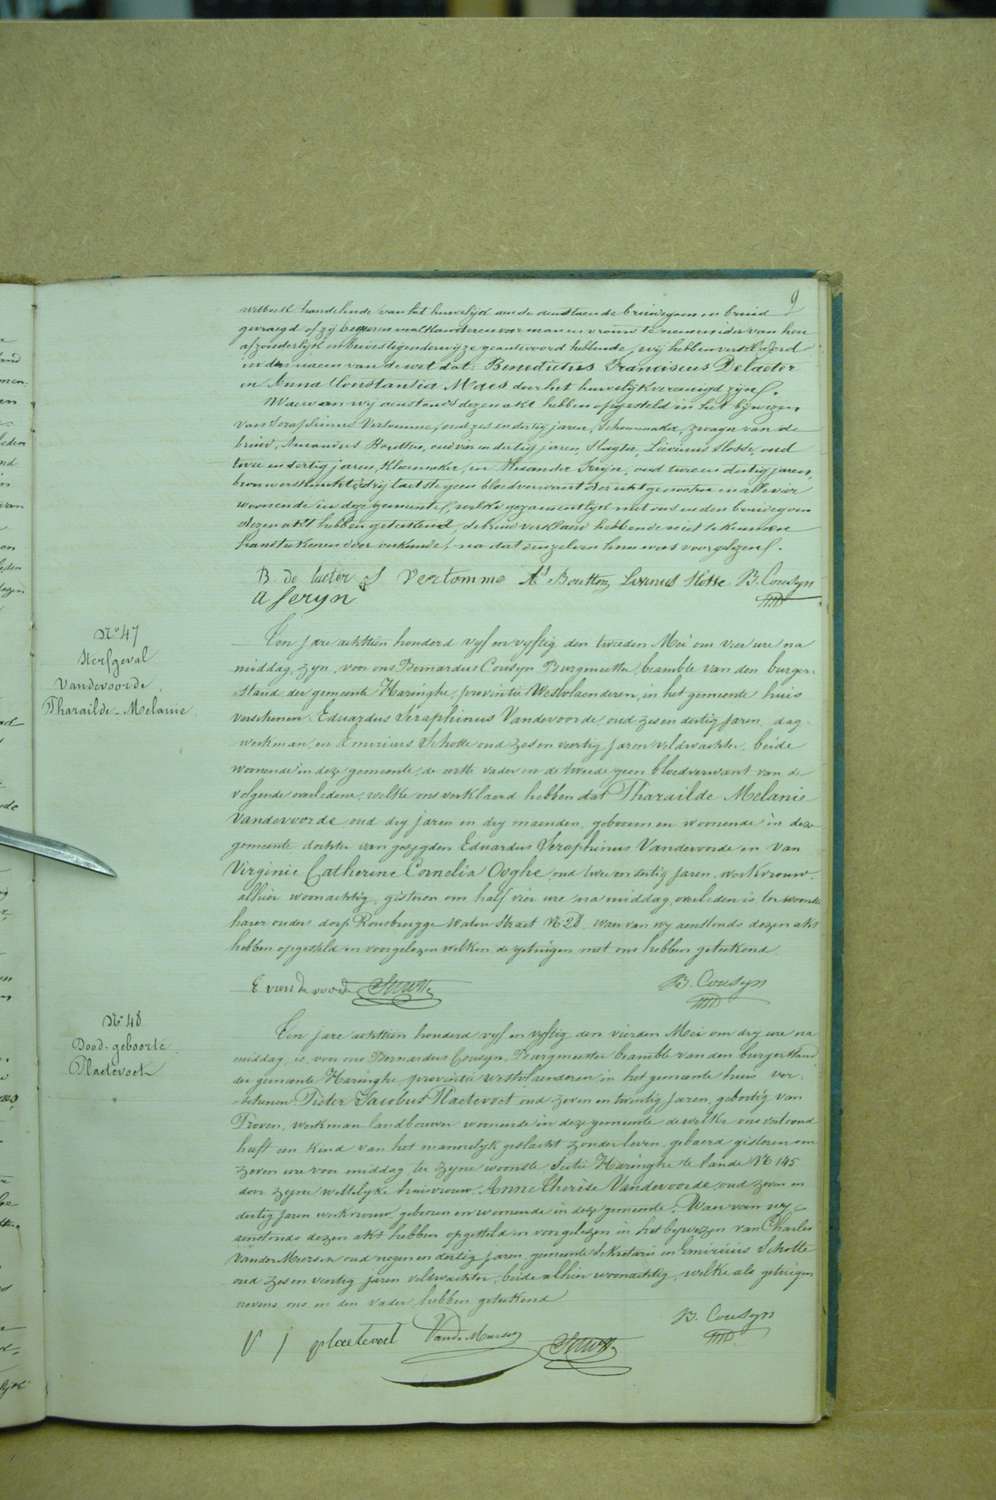 9
wetboek handelende van het huwelijk aan de aenstaende bruidegom en bruid
gevraegd of zij begeeren malkanderen voor man en vrouw te nemen ider van hun
afzonderlijk en bevestigenderwijze geantwoord hebbende, wij hebben verklaerd
in den naem van de wet dat: Benedictus Franciscus Delaeter
en Anna Constantia Maes door het huwelijk vereenigd zijn.
Waervan wij aenstonds dezen akt hebben opgesteld in het bijwezen
van Seraphinus Vertomme, oud zes en dertig jaren, Schoenmaker, zwager van de
bruid, Amandus Boutton, oud vier en dertig jaren, Slagter, Livinus Slosse, oud
twee en dertig jaren, Kleermaker, en Alexander Seryn, oud twee en dertig jaren,
brouwersknecht, de drij laetste geen bloedverwant der echtgenooten en alle vier
woonende in deze gemeente, welke gezamentlijk met ons en den bruidegom
dezen akt hebben geteekend, de bruid verklaerd hebbende niet te kunnen
handteekenen door onkunde, na dat dezelven hun was voorgelezen.
B. de laeter S Vertomme A. Boutton Livinus Slosse B. Cousyn
A Seryn
No 47
Sterfgeval
Vandevoorde
Tharailde-Melanie
Ten jare achttien honderd vyf en vyftig den tweeden Mei om vier ure na
middag, zyn voor ons Bernardus Cousyn Burgmeester, beambte van den burger-
stand der gemeente Haringhe, provintie Westvlaenderen, in het gemeente huis
verschenen Eduardus Seraphinus Vandevoorde oud zes en dertig jaren, dag-
werkman, en Emerinus Schotte oud zes en veertig jaren veldwachter, beide
woonende in deze gemeente, de eerste vader en de tweede geen bloedverwant van de
volgende overledene, welke ons verklaerd hebben dat Tharailde Melanie
Vandevoorde oud dry jaren en dry maenden, geboren en woonende in deze
gemeente dochter van gezegden Eduardus Seraphinus Vandevoorde en van
Virginie Catherine Cornelia Ooghe, oud twee en dertig jaren, werkvrouw,
alhier woonachtig, gisteren om half vier ure na middag overleden is ter woonste
harer ouders dorp Rousbrugge Water Straet No 28. Waer van wy aenstonds dezen akt
hebben opgesteld en voorgelezen welken de getuigen met ons hebben geteekend.
E vandevoorde Schotte B. Cousyn
No 48
Dood-geboorte
Plaetevoet
Ten jare achttien honderd vyf en vyftig den vierden Mei om dry ure na
middag, is voor ons Bernardus Cousyn, Burgmeester beambte van den burgerstand
der gemeente Haringhe, provintie Westvlaenderen, in het gemeente huis ver-
schenen Pieter Jacobus Plaetevoet oud zeven en twintig jaren, geboortig van
Proven, werkman landbouwer woonende in deze gemeente dewelke ons vertoond
heeft een kind van het mannelyk geslacht zonder leven, gebaerd gisteren om
zeven ure voor middag ter zyne woonste Sectie Haringhe te lande No 145
door zyne wettelyke huisvrouw Anne Therese Vandevoorde, oud zeven en
dertig jaren werkvrouw, geboren en woonende in deze gemeente. Waer van wy
aenstonds dezen akt hebben opgesteld en voorgelezen in het bijwezen van Charles
Vander Meersch oud negen en dertig jaren, gemeente Sekretaris en Emerinus Schotte
oud zes en veertig jaren veldwachter, beide alhier woonachtig, welke als getuigen
nevens ons en den vader hebben geteekend
P J plaetevoet Vande Meersch Schotte B. Cousyn